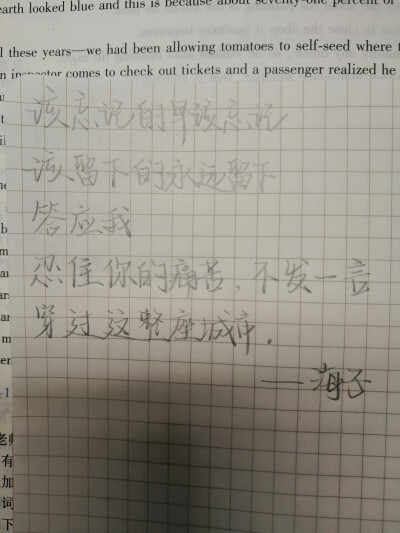 earth looked blue and this is because about seventy-one percent of
l these years—we had been allowing tomatoes to self-seed where t
n inspector comes to check out tickets and a passenger realized he
该忘记的早该忘记
该留下的永远留下
答应我
忍住你的痛苦,不发一言
穿过这整座城市.
——海子
老师
有
加
词
下